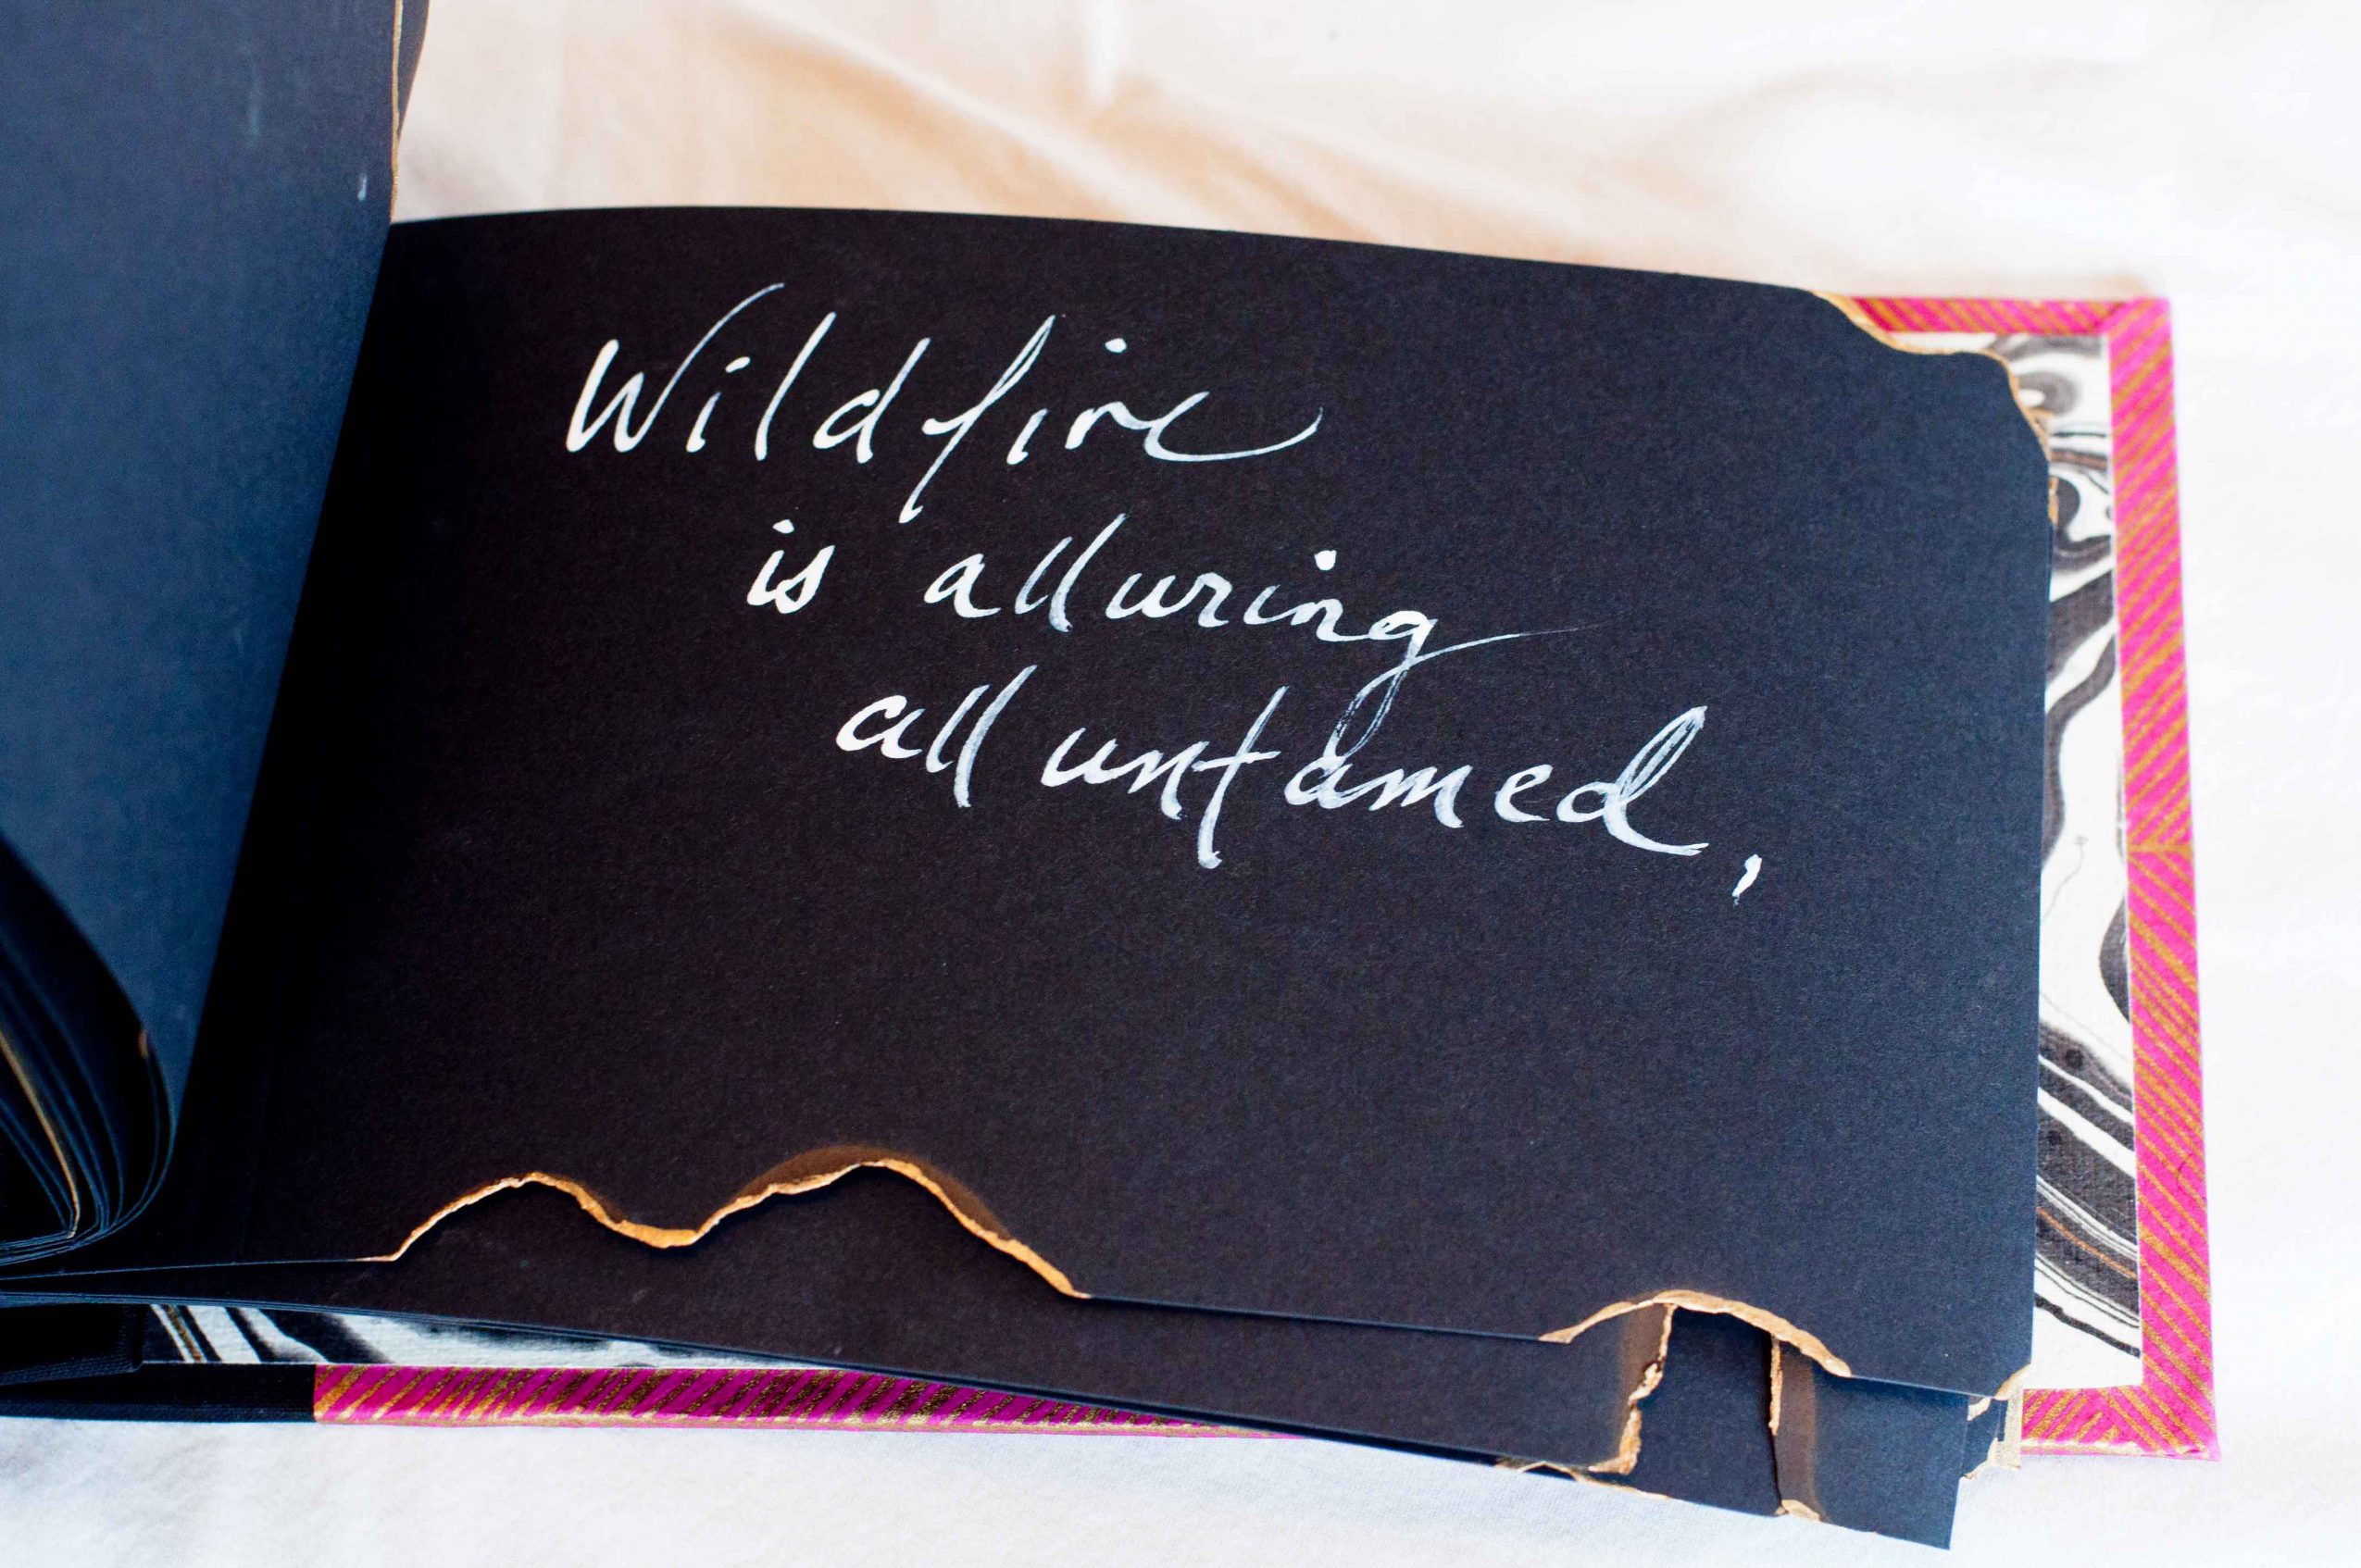 Wildfire
is alluring
all untamed,